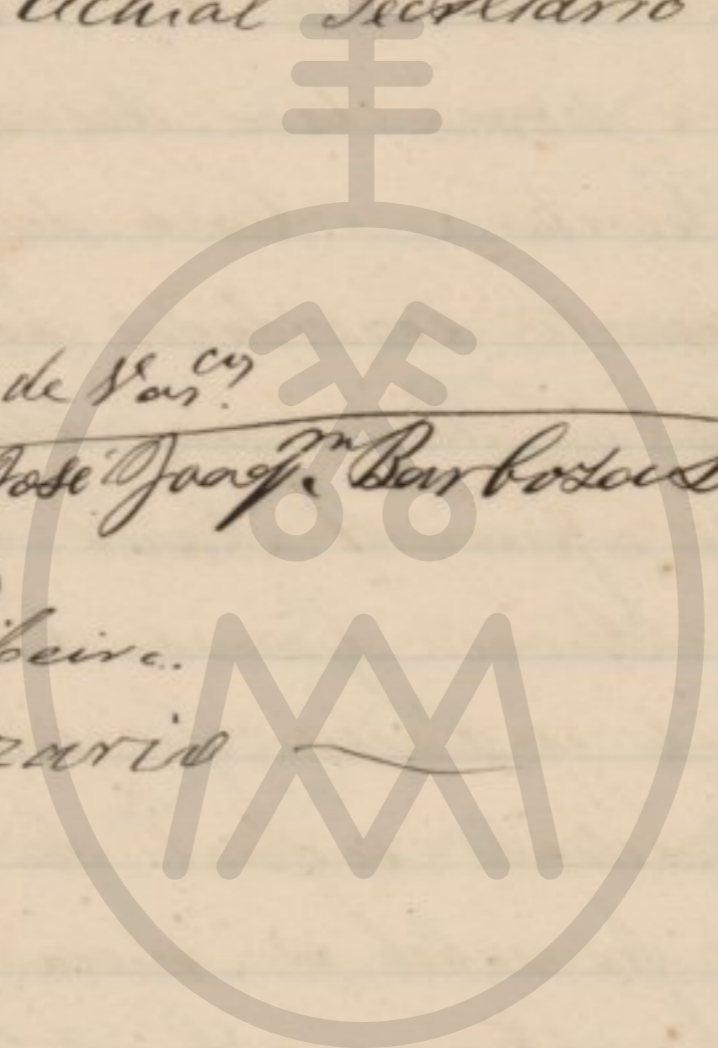 Actual Secretario
de Vas.cos
José Joaq.m Barboza
beiro.
zario